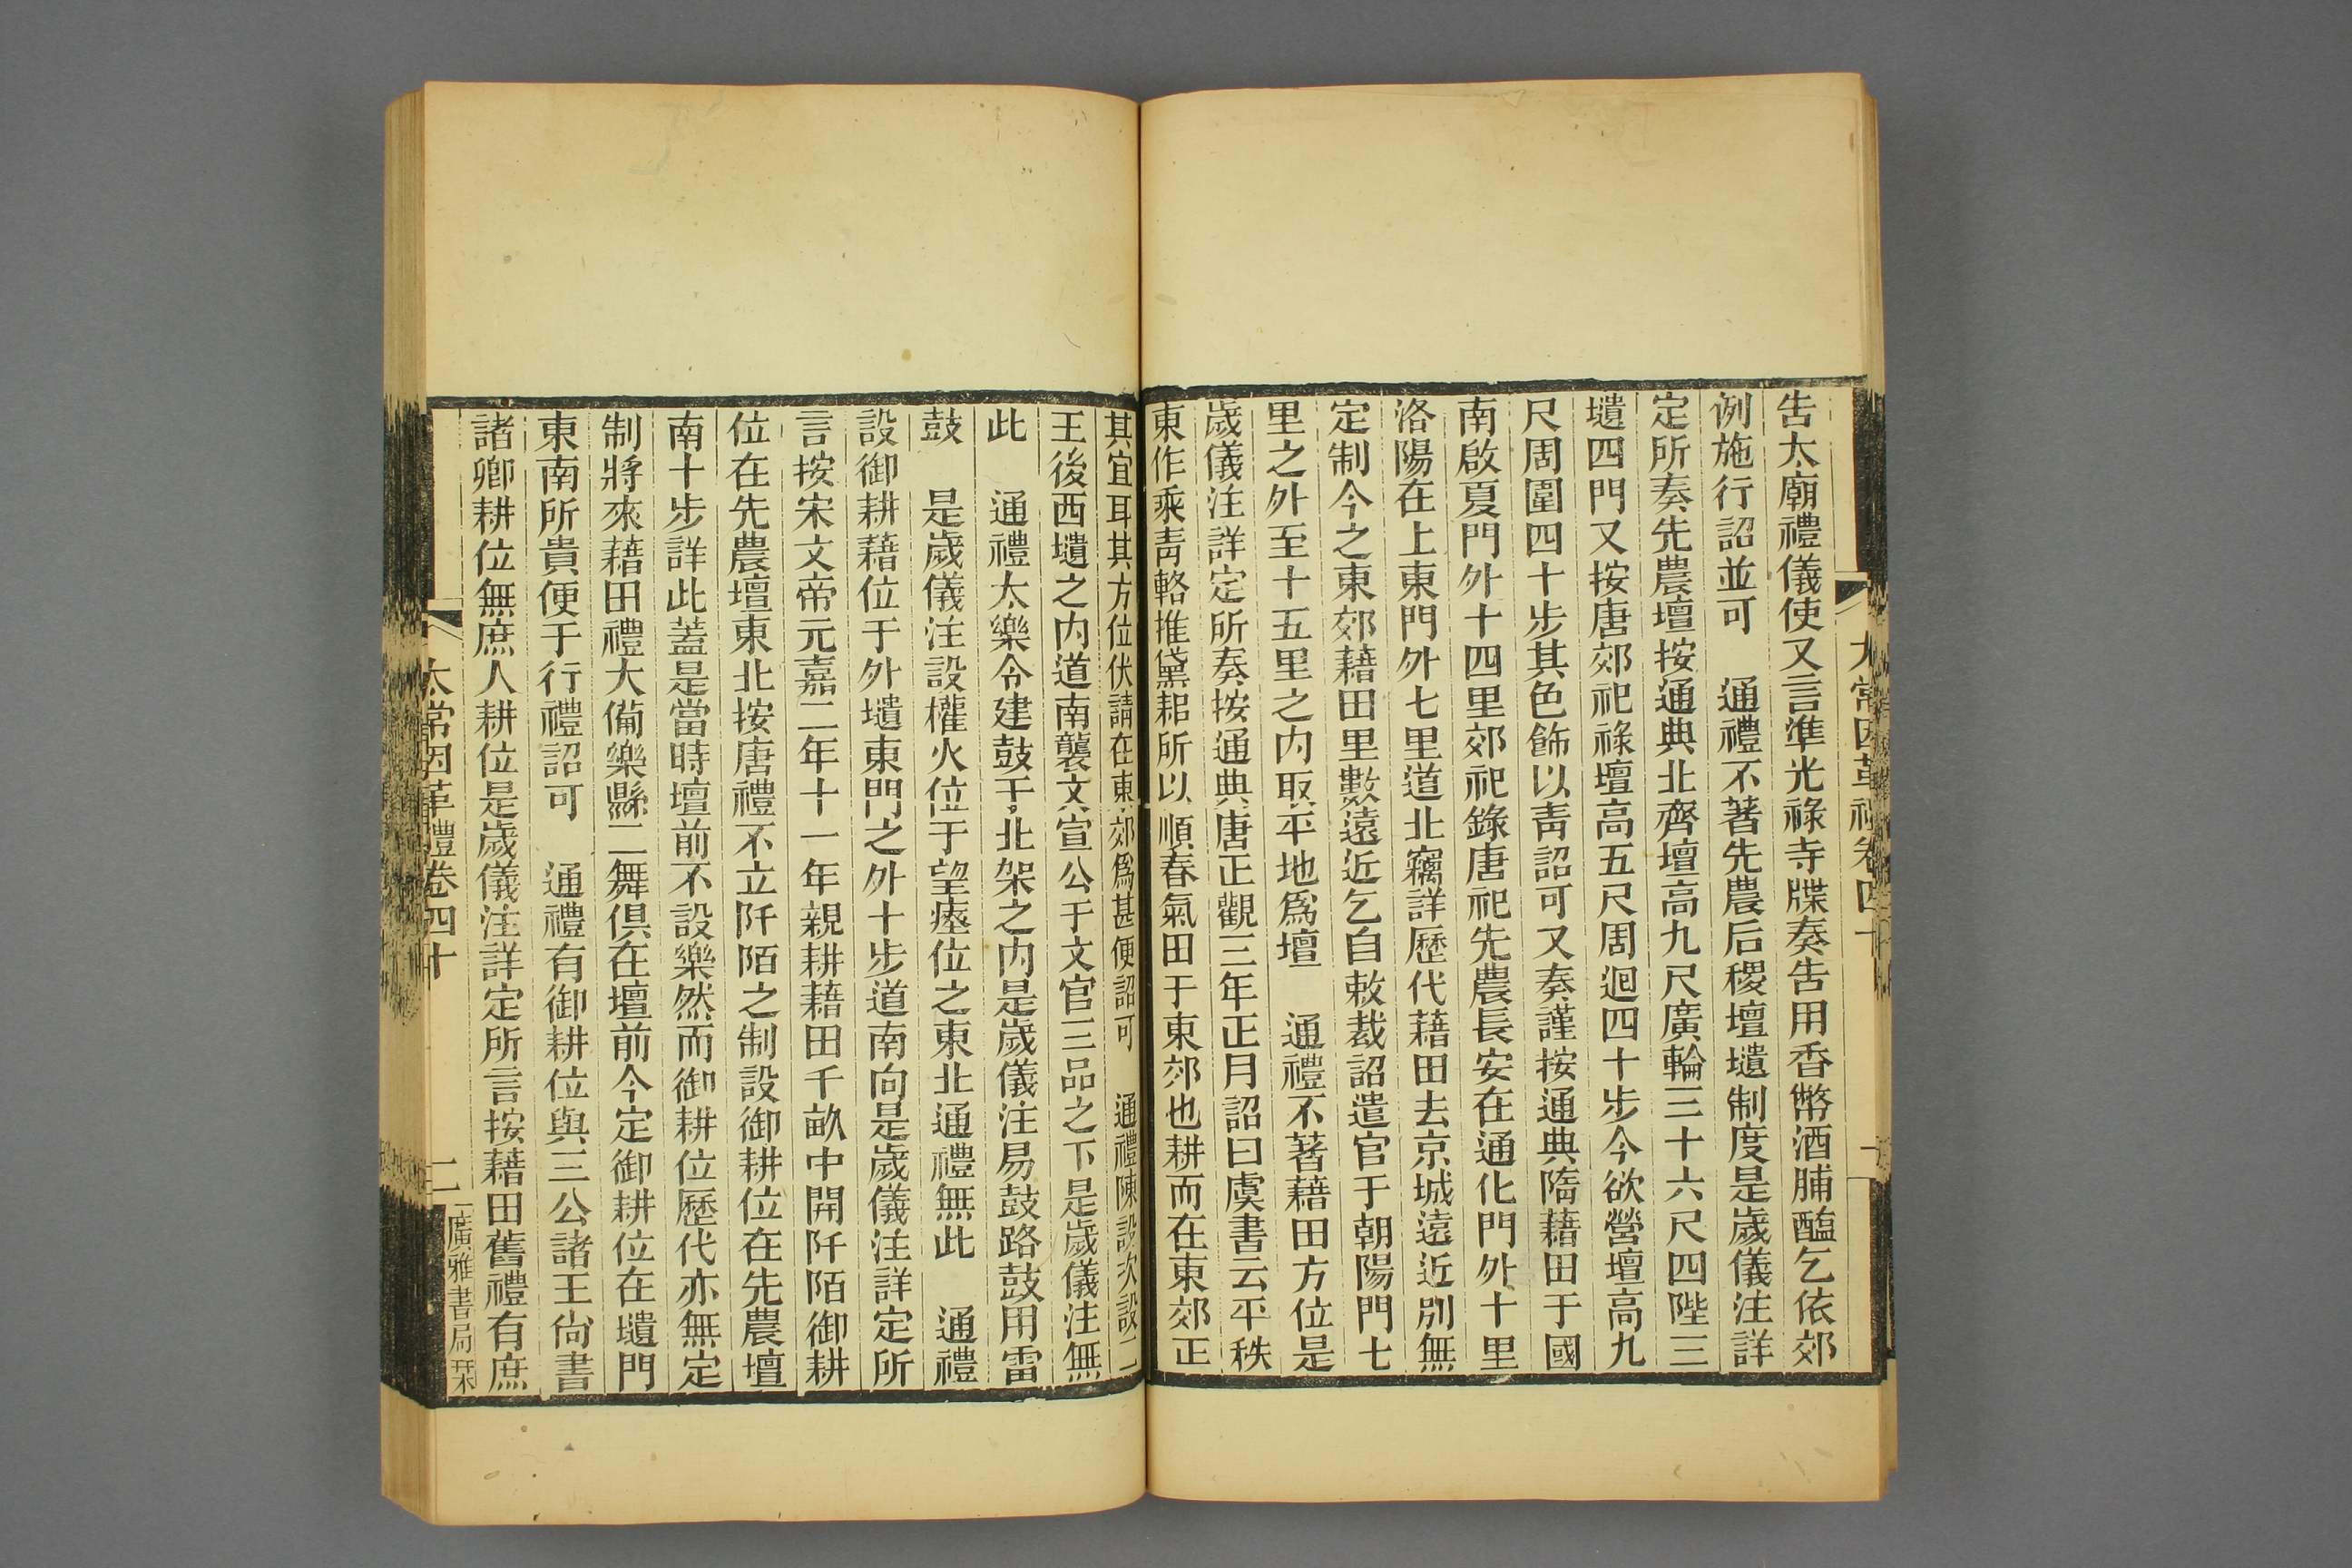 太常因革禮卷四十
告太廟禮儀使又言準光祿寺牒奏告用香幣酒脯醢乞依郊
例施行詔並可　通禮不著先農后稷壇壝制度是歲儀注詳
定所奏先農壇按通典北齊壇高九尺廣輪三十六尺四陛三
壝四門又按唐郊祀祿壇高五尺周迴四十步今欲營壇高九
尺周圍四十步其色飾以靑詔可又奏謹按通典隋藉田于國
南啟夏門外十四里郊祀錄唐祀先農長安在通化門外十里
洛陽在上東門外七里道北竊詳歷代藉田去京城遠近別無
定制今之東郊藉田里數遠近乞自敕裁詔遣官于朝陽門七
里之外至十五里之内取平地爲壇　通禮不著藉田方位是
歲儀注詳定所奏按通典唐正觀三年正月詔曰虞書云平秩
東作乘靑輅推黛耜所以順春氣田于東郊也耕而在東郊正
其宜耳其方位伏請在東郊爲甚便詔可　通禮陳設次設二
王後西壝之内道南襲文宣公于文官三品之下是歲儀注無
此　通禮太樂令建鼓于北架之内是歲儀注易鼓路鼓用雷
鼓　是歲儀注設權火位于望瘞位之東北通禮無此　通禮
設御耕藉位于外壝東門之外十步道南向是歲儀注詳定所
言按宋文帝元嘉二年十一年親耕藉田千畝中開阡陌御耕
位在先農壇東北按唐禮不立阡陌之制設御耕位在先農壇
南十步詳此蓋是當時壇前不設樂然而御耕位歷代亦無定
制將來藉田禮大備樂縣二舞俱在壇前今定御耕位在壝門
東南所貴便于行禮詔可　通禮有御耕位與三公諸王尙書
諸卿耕位無庶人耕位是歲儀注詳定所言按藉田舊禮有庶
太常因革禮卷四十
二
廣雅書局栞